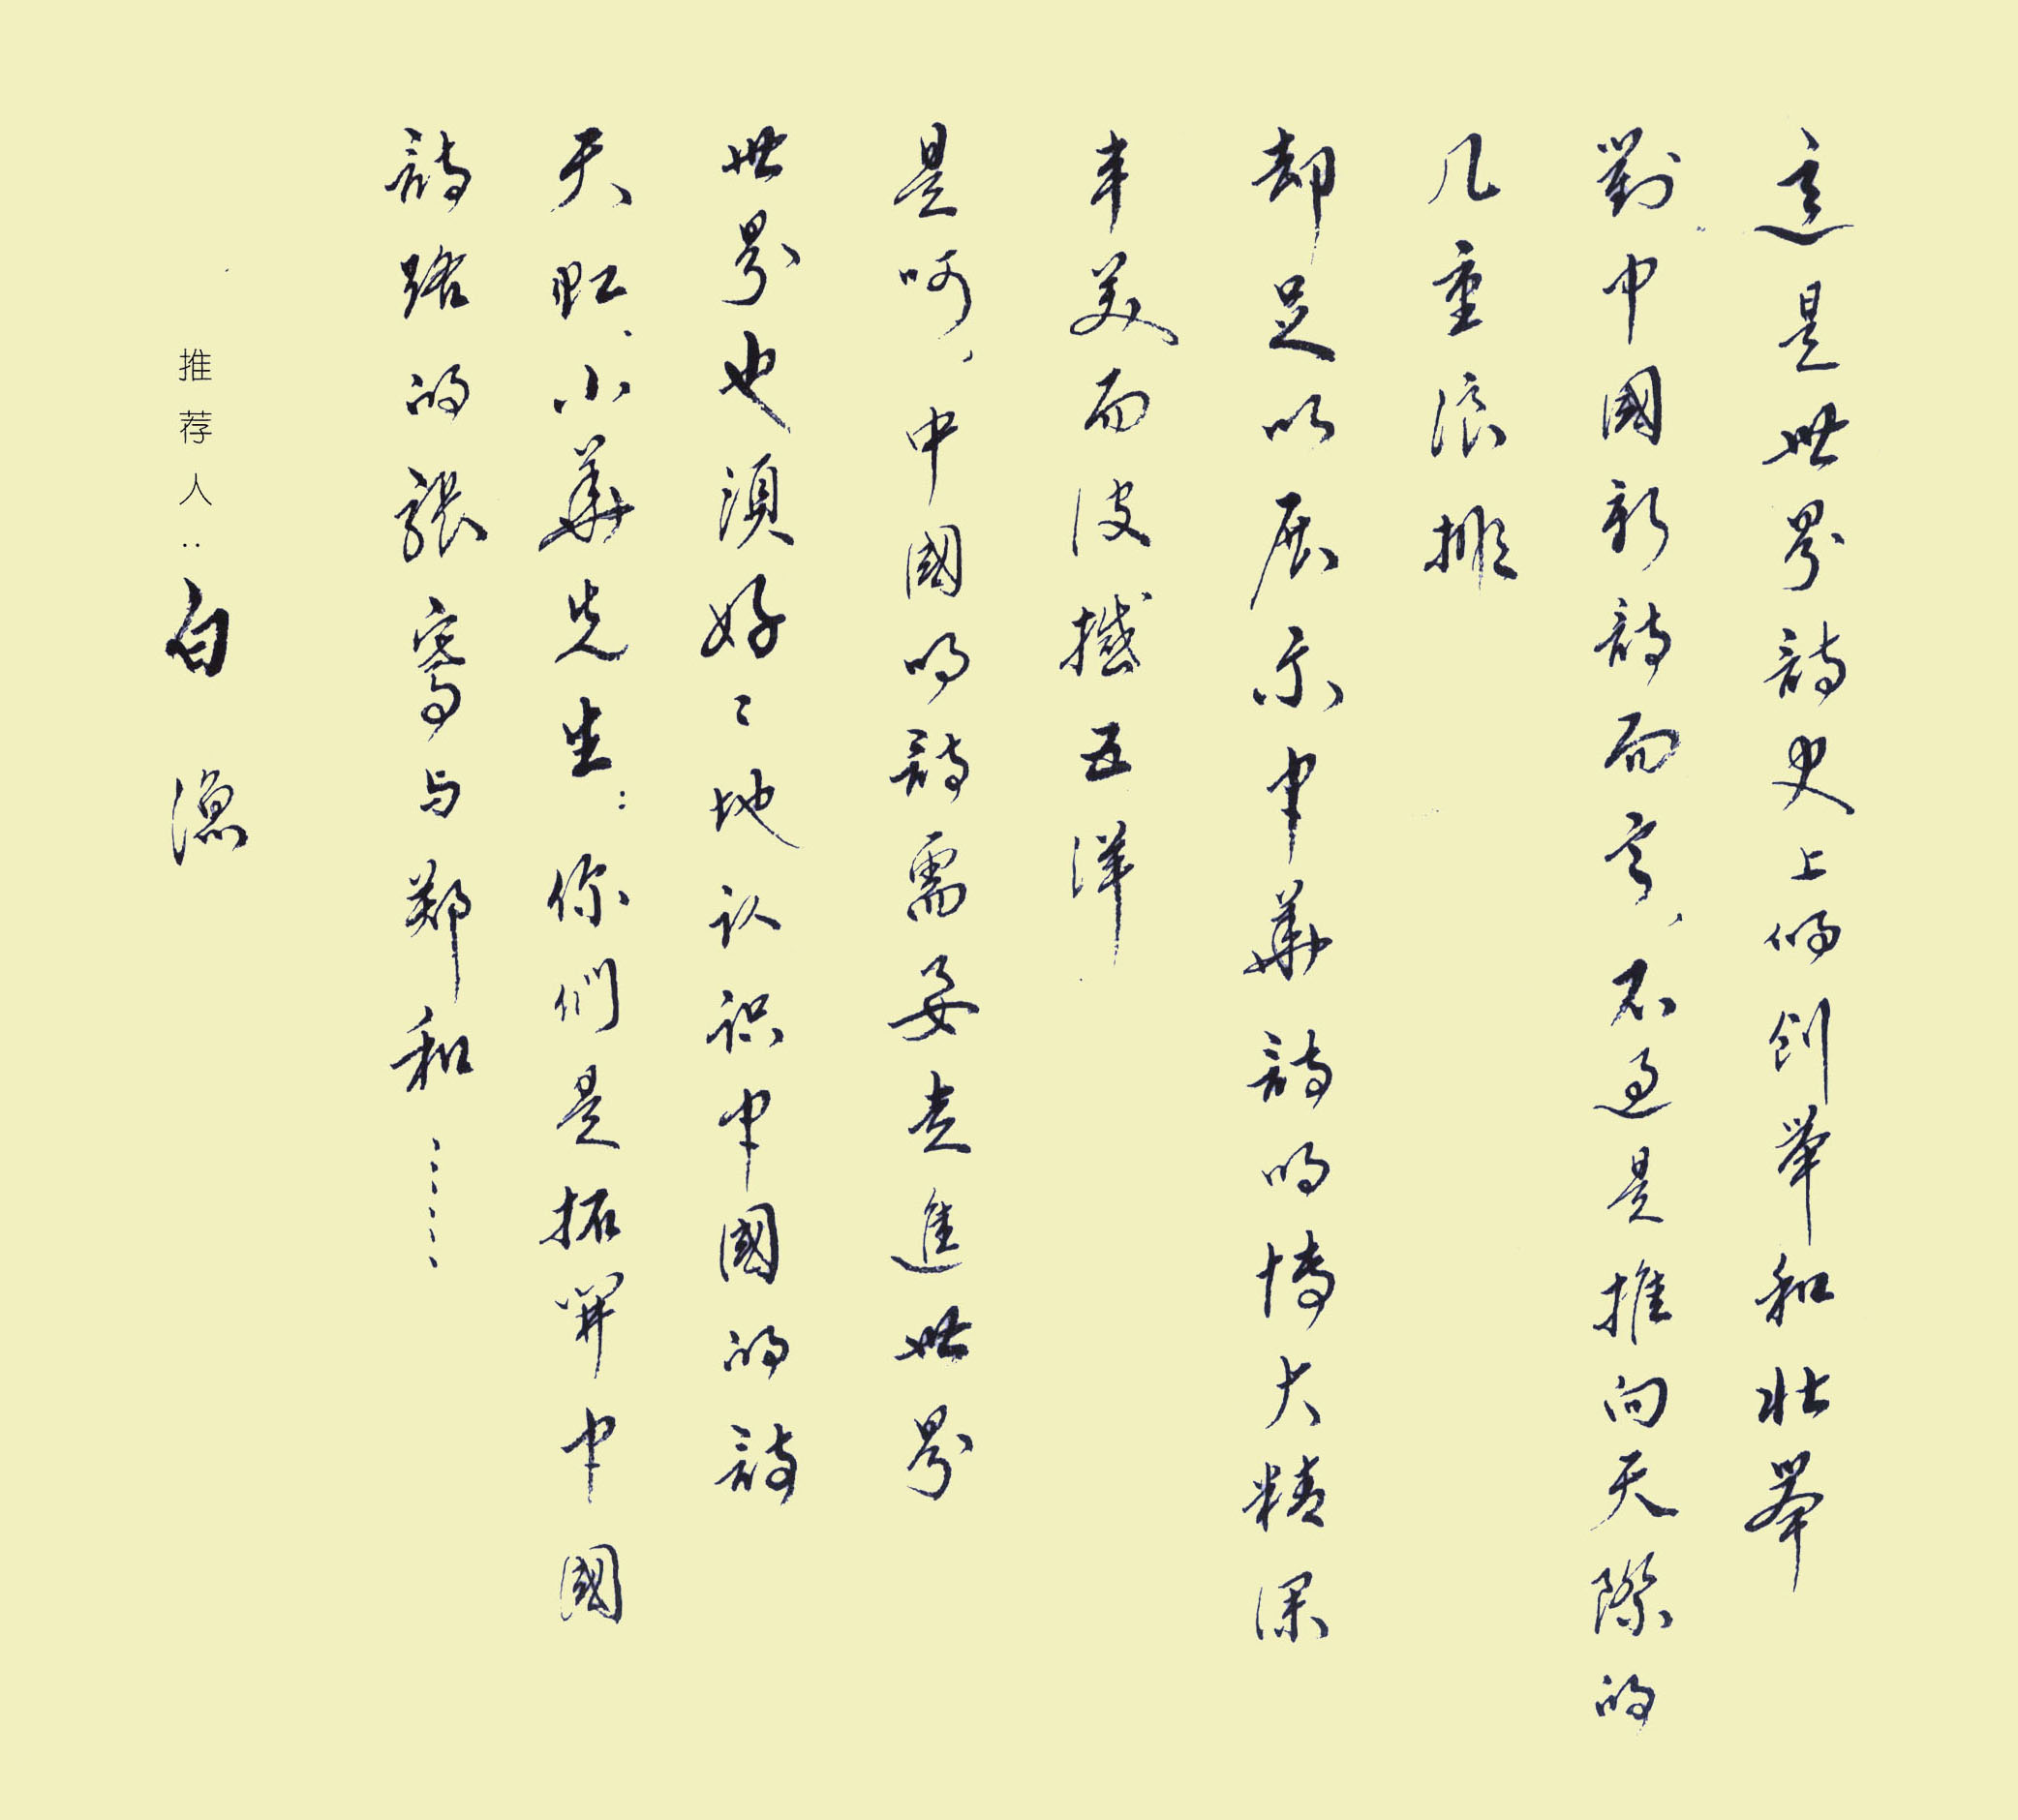 這是世界詩史上的創举和壮举
對中國新詩而言、不過是推向天際的
几重浪排
却足以展示中華詩的博大精深
丰美而波撼五洋
是呵，中國的詩需要走進世界
世界也須好々地认识中國的詩
天虹、小華先生：你們是拓開中國
詩路的張騫与郑和……
推荐人：白渔